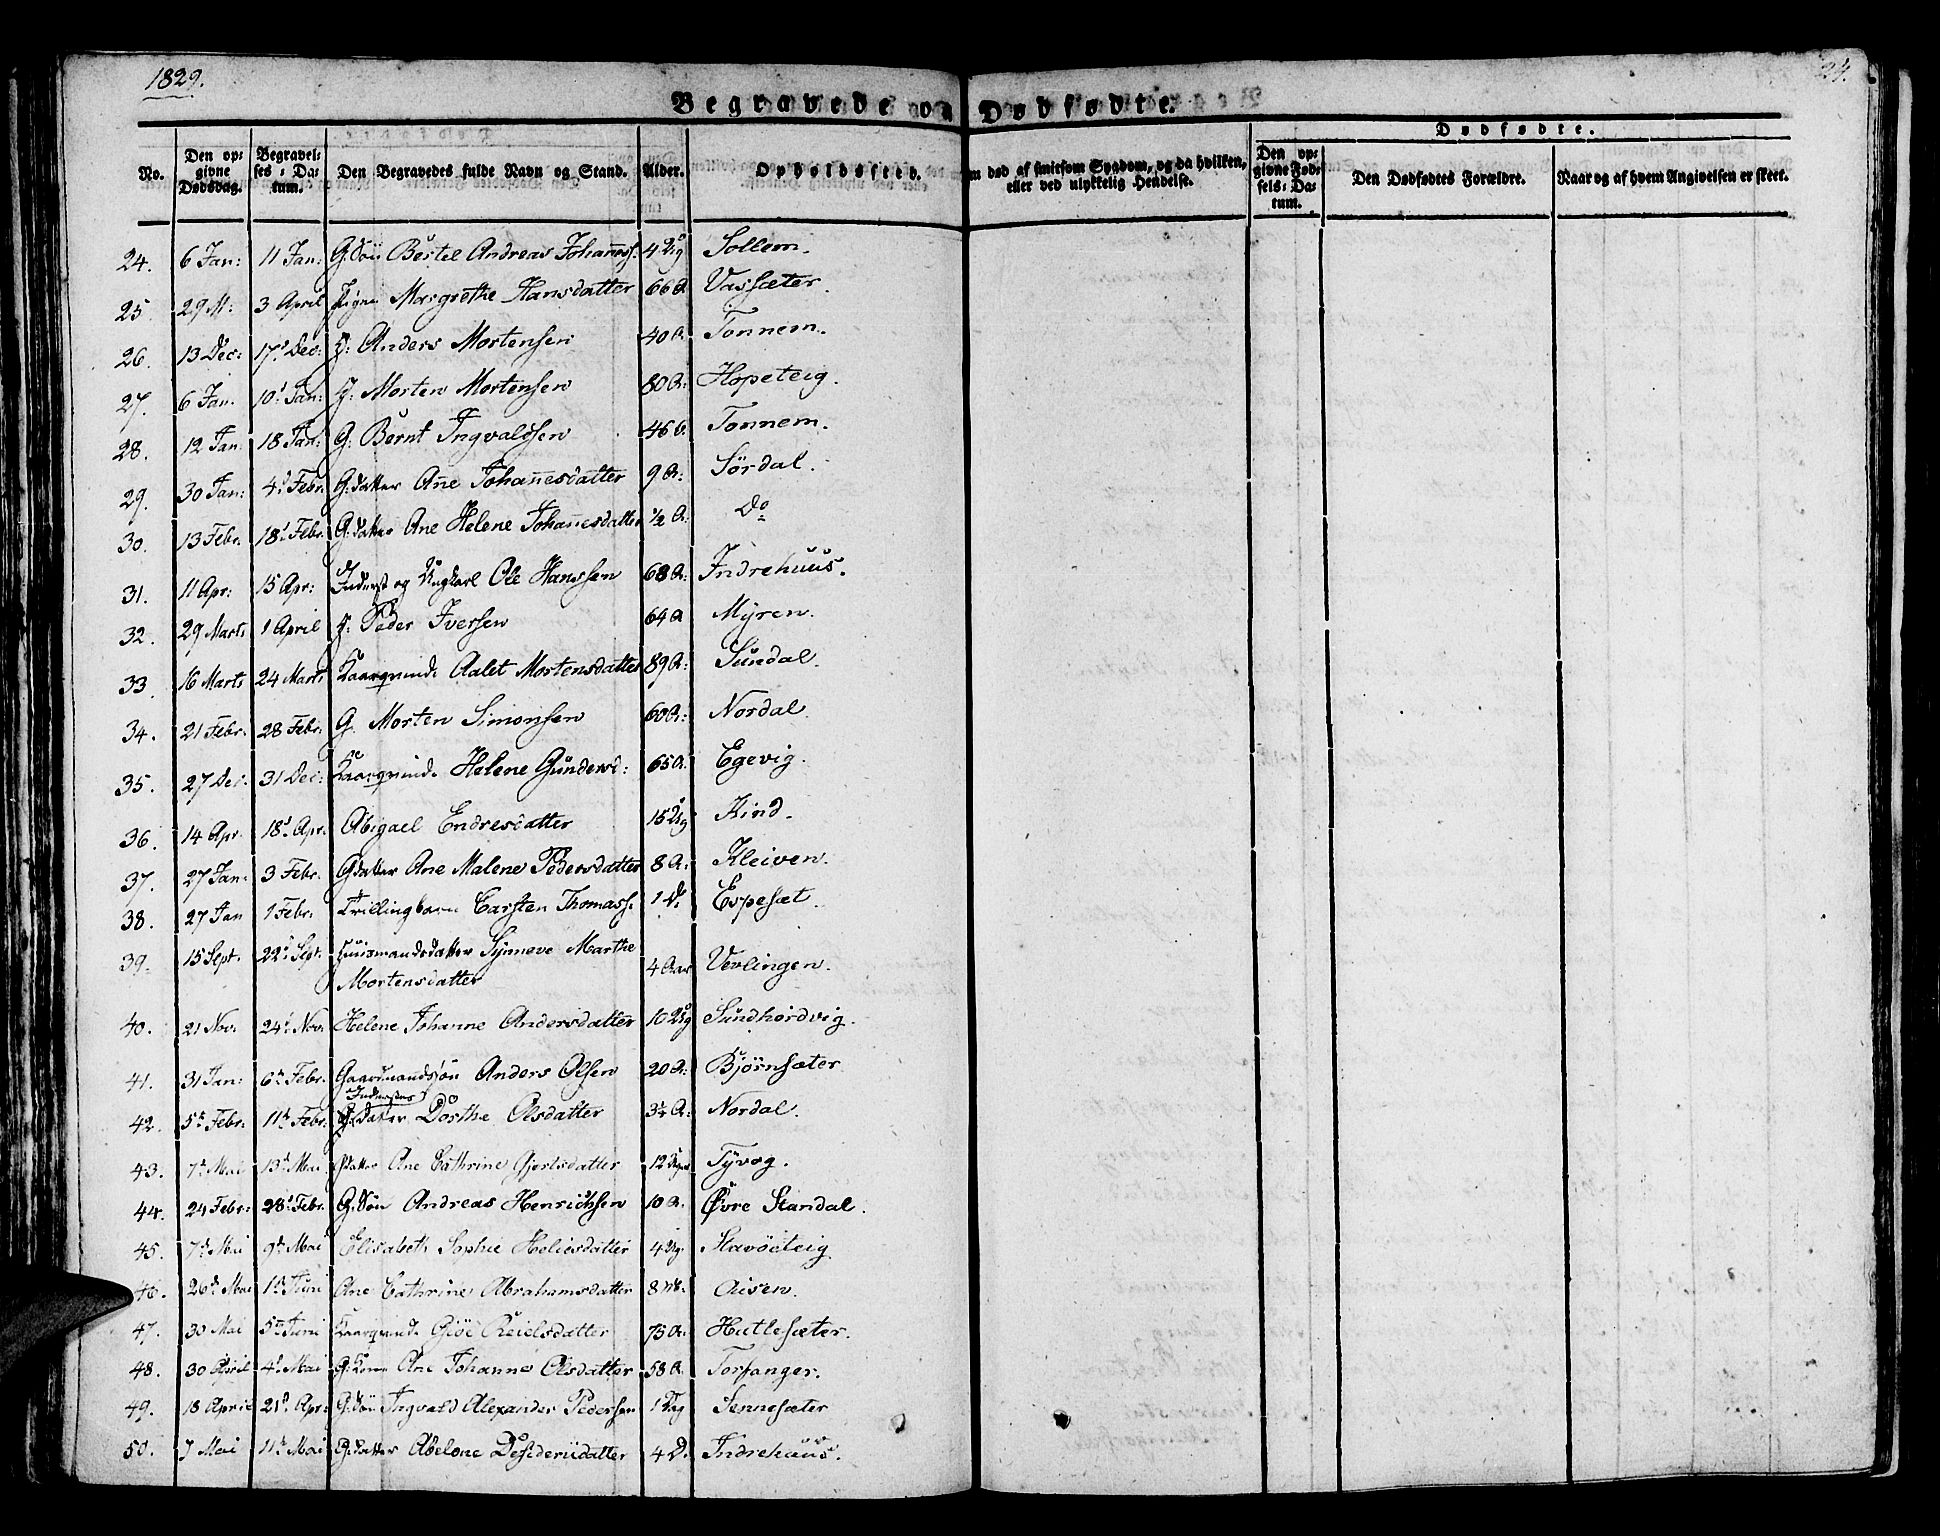 1829.
24.
Begravede og Dødfødte.
No.
Den opgivne Dødsdag.
Begravelses-Datum.
Den Begravedes fulde Navn og Stand.
Alder.
Opholdssted.
død af smitsom Sygdom, og da hvilken, eller ved ulykkelig Hendelse.
Dødfødte.
Den opgivne Fødsels-Datum.
Den Dødfødtes Forældre.
Naar og af hvem Angivelsen er skeet.
24. 6 Jan: 11 Jan: G. Søn Bertel Andreas Johannss: 4 Ug Sollem.
25. 29 M: 3 April Pigen Margrethe Hansdatter 66 A Vassæter.
26. 13 Dec: 17 Dec: Anders Mortensen 40 A. Tonnem.
27. 6 Jan. 10 Jan: Morten Mortensen 80 A: Hopeteig.
28. 12 Jan. 18 Jan: G: Bernt Ingvaldsen 46 Tonnem.
29. 30 Jan: 4 Febr. G: datter Ane Johannesdatter 9 A: Sørdal.
30. 13 Febr. 18 Febr. G: datter Ane Helene Johannesdatter 1/2 A: Do
31. 11 Apr: 15 Apr: Inderst og Ungkarl Ole Hanssen 68 A: Indrehuus.
32. 29 Marts 1 April Peder Iversen 64 A Myren.
33. 16 Marts 24 Marts Kaarqvinde Aalet Mortensdatter 89 A: Sundal.
34. 21 Febr. 28 Febr: G. Morten Simonsen 60 A: Nordal.
35. 27 Dec: 31 Dec: Kaarqvinde Helene Gundersd: 65 A: Egevig.
36. 14 Apr. 18 Apr. Abigael Endresdatter 15 Ug Rind.
37. 27 Jan. 3 Febr. G datter Ane Malene Pedersdatter 8 A: Kleiven.
38. 27 Jan 1 Febr. Trillingbarn Carsten Thomass. 1 D. Espesæt.
39. 15 Sept. 22 Sept. Huusmandsdatter Synneve Marthe
Mortensdatter 4 Aar Vevlingen.
40. 21 Nov. 24 Nov. Helene Johanne Andersdatter 10 Ug Sundhordvig.
41. 31 Jan: 6 Febr. Gaardmandssøn Anders Olsen 20 A: Bjørnsæter.
Inderstes
42. 5 Febr. 11 Febr. datter Dorthe Olsdatter A: Nordal.
43. 7 Mai 13 Mai G datter Ane Cathrine Gjertsdatter 12 Tyvog.
44. 24 Febr: 28 Febr. G. Søn Andreas Henrichsen 10 A. Øvre Standal.
45. 7 Mai 9 Mai Elisabeth Sophie Heliesdatter 4 Ug. Stavøeteig
46. 26 Mai 1 Juni Ane Cathrine Abrahamsdatter 8 Aisen.
47. 30 Mai 5 Juni Kaarqvinde Giøe Reielsdatter 75 A: Hatlesæter.
48. 30 April 4 Mai G: Kone Ane Johanne Olsdatter 58 A Torfanger.
49. 18 April 21 Apr: G: Søn Ingvald Alexander Pedersen 1 Dag Sennesæter
50. 7 Mai 11 Mai G: datter Abelone Desideriidatter 4 D. Indrehuus.